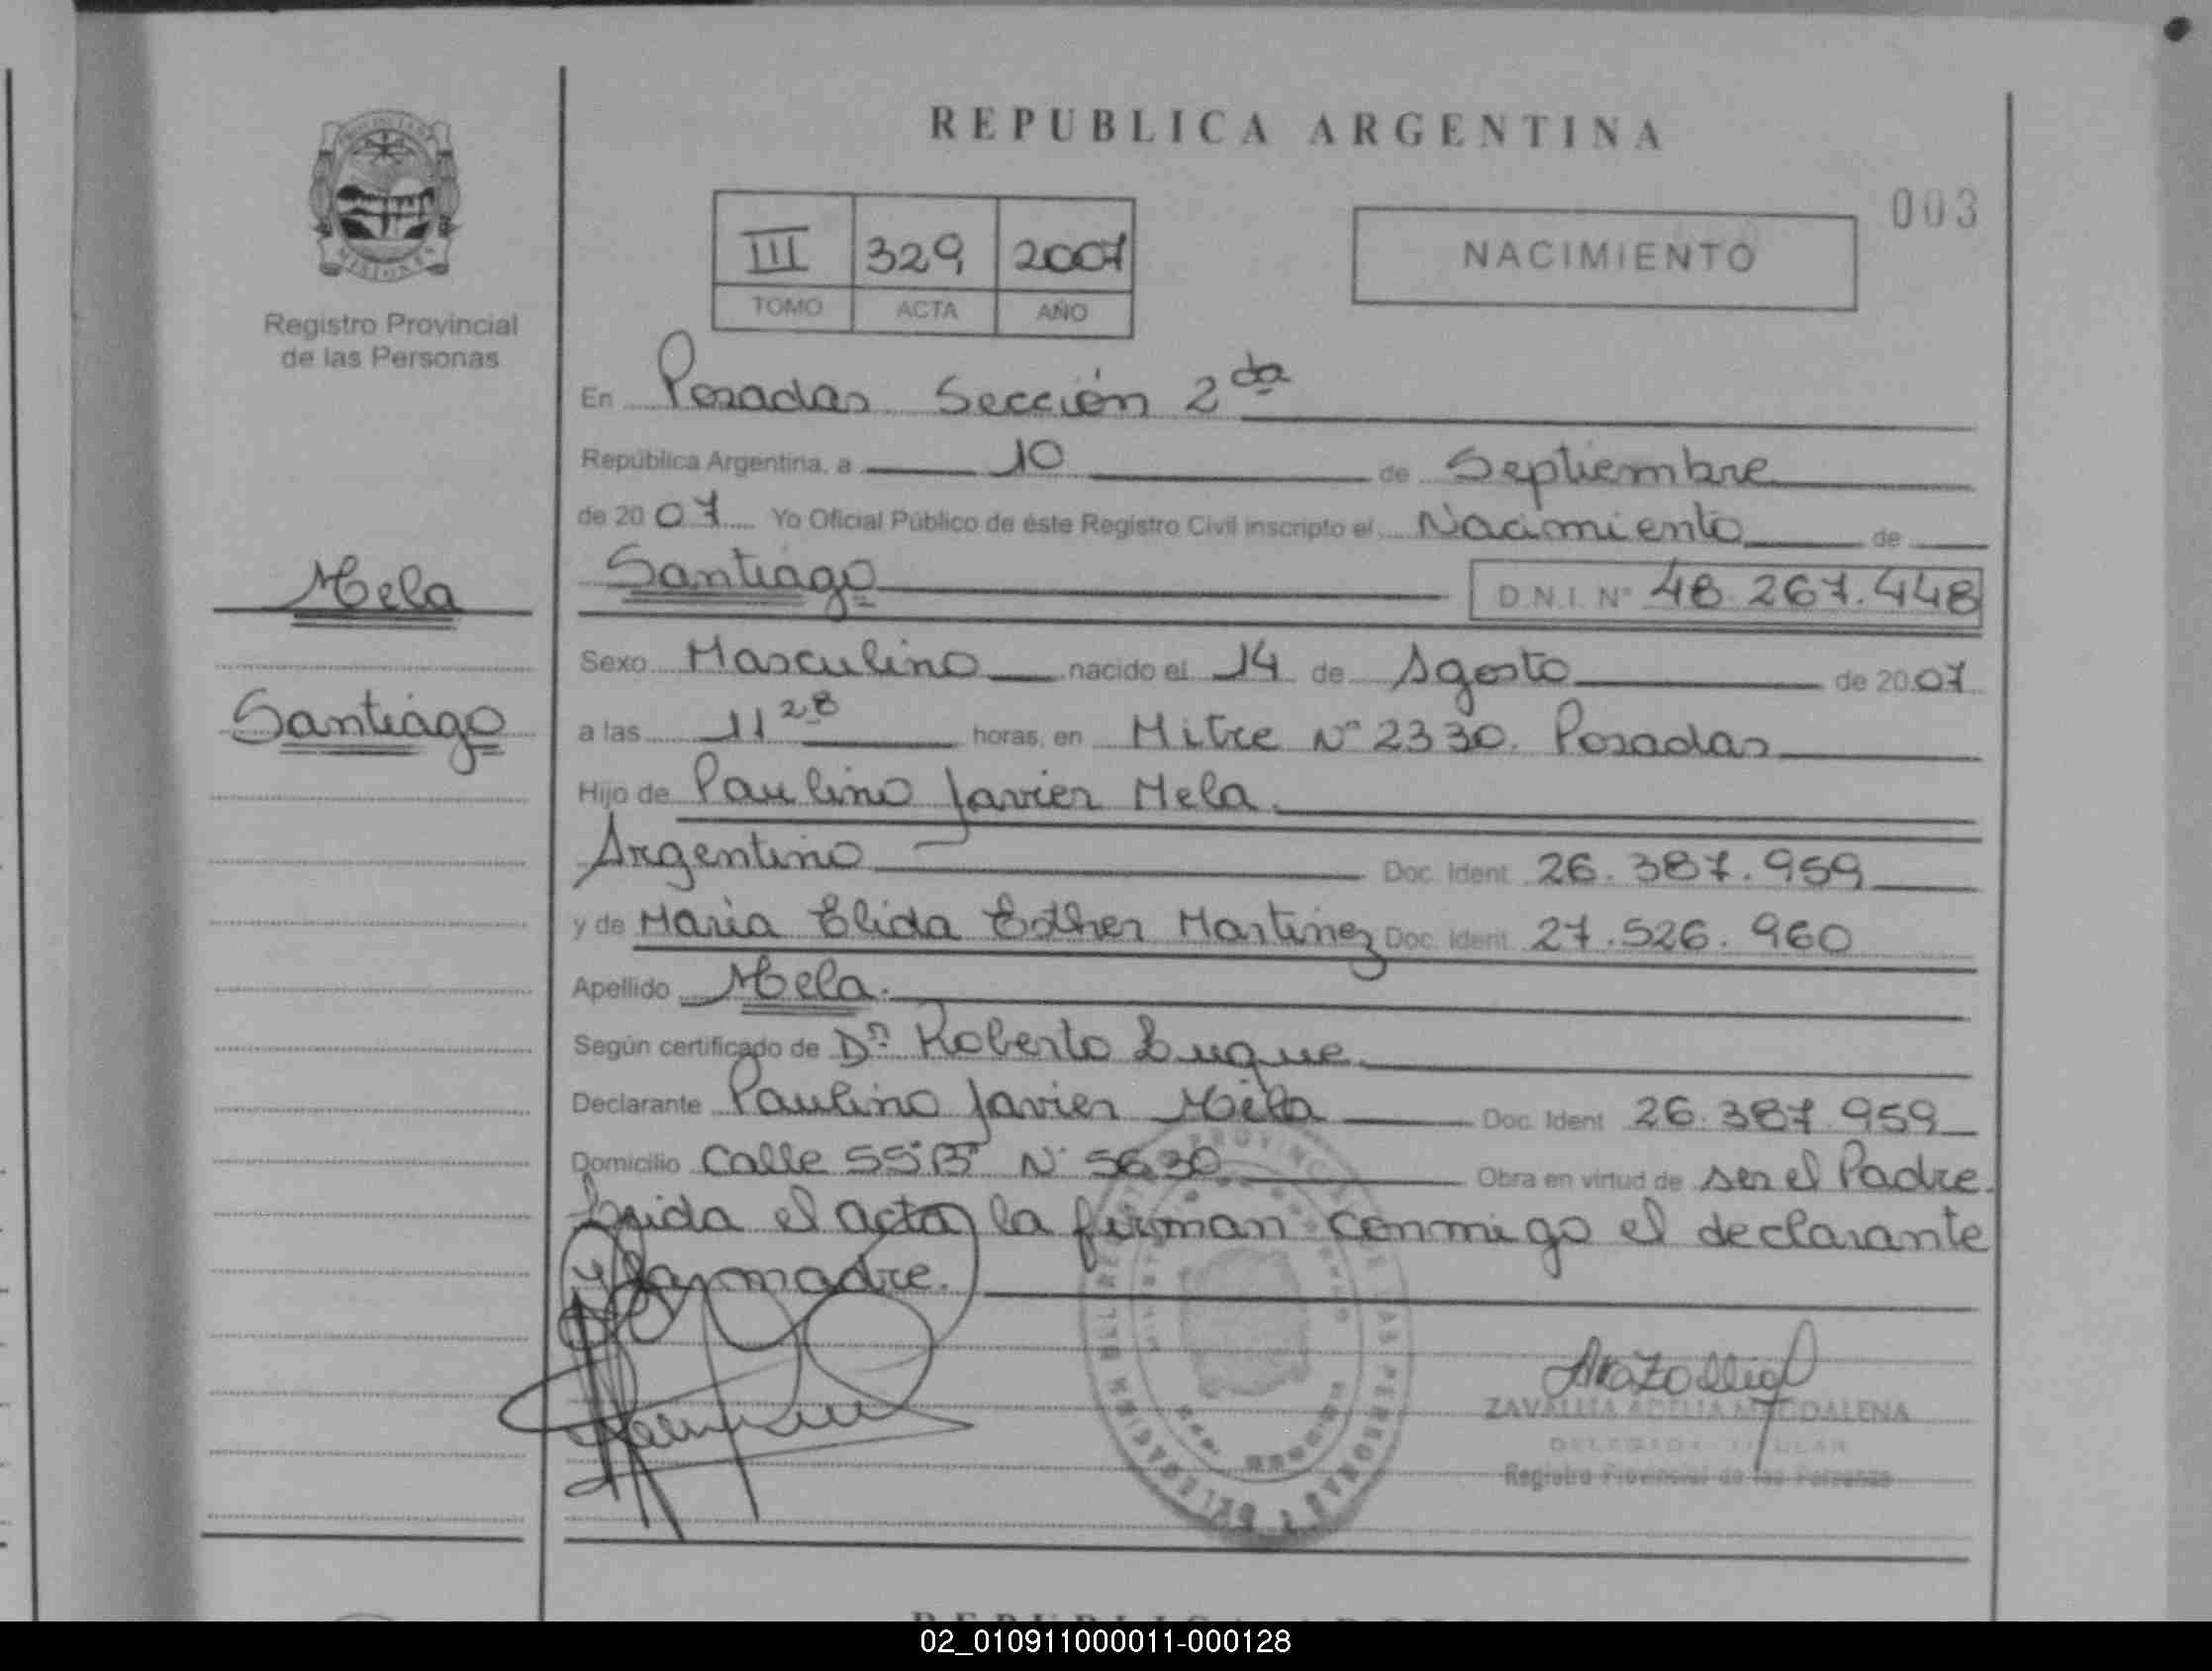 REPUBLICA ARGENTINA
003
III 329 2007
TOMO ACTA AÑO
NACIMIENTO
MISIONES
Registro Provincial
de las Personas
Mela
Santiago
En Posadas Sección 2da
República Argentina, a 10 de Septiembre
de 2007 Yo Oficial Público de éste Registro Civil inscripto el Nacimiento de
Santiago D.N.I. Nº 48.267.448
Sexo Masculino nacido el 14 de Agosto de 2007
a las 11 28 horas, en Mitre Nº 2330. Posadas
Hijo de Paulino Javier Mela.
Argentino Doc. Ident. 26.387.959
y de Maria Elida Esther Martinez Doc. Ident. 27.526.960
Apellido Mela.
Según certificado de Dr. Roberto Luque
Declarante Paulino Javier Mela Doc. Ident. 26.387.959
Domicilio Calle 55"B" Nº 5630 Obra en virtud de ser el Padre.
Leida el acta la firman conmigo el declarante
y la madre.
ZAVALLIA ADELIA MAGDALENA
DELEGADA TITULAR
Registro Provincial de las Personas
02_010911000011-000128